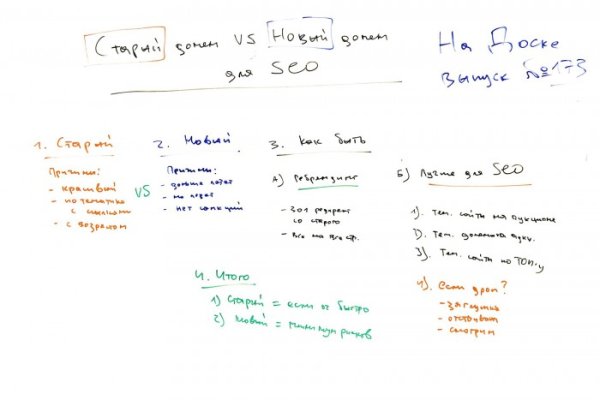 Старый домен VS Новый домен
для SEO
На Доске
выпуск №173
1. Старый
Причины:
- красивый
- по тематике
с ссылками
- с возрастом
VS
2. Новый
Причины:
- дольше
- не
- нет санкций
3. Как быть
А) Ребрендинг
- 301 редирект
со старого
- Все на все стр.
Б) Лучше для SEO
1). Тем. сайты на аукционе
2). Тем. домены аукц.
3). Тем. сайты по ТОП-у
4). если дроп?
- загрузка
- отстаивать
- смотрим
4. Итого
1) Старый = если оч быстро
2) Новый = минимум рисков